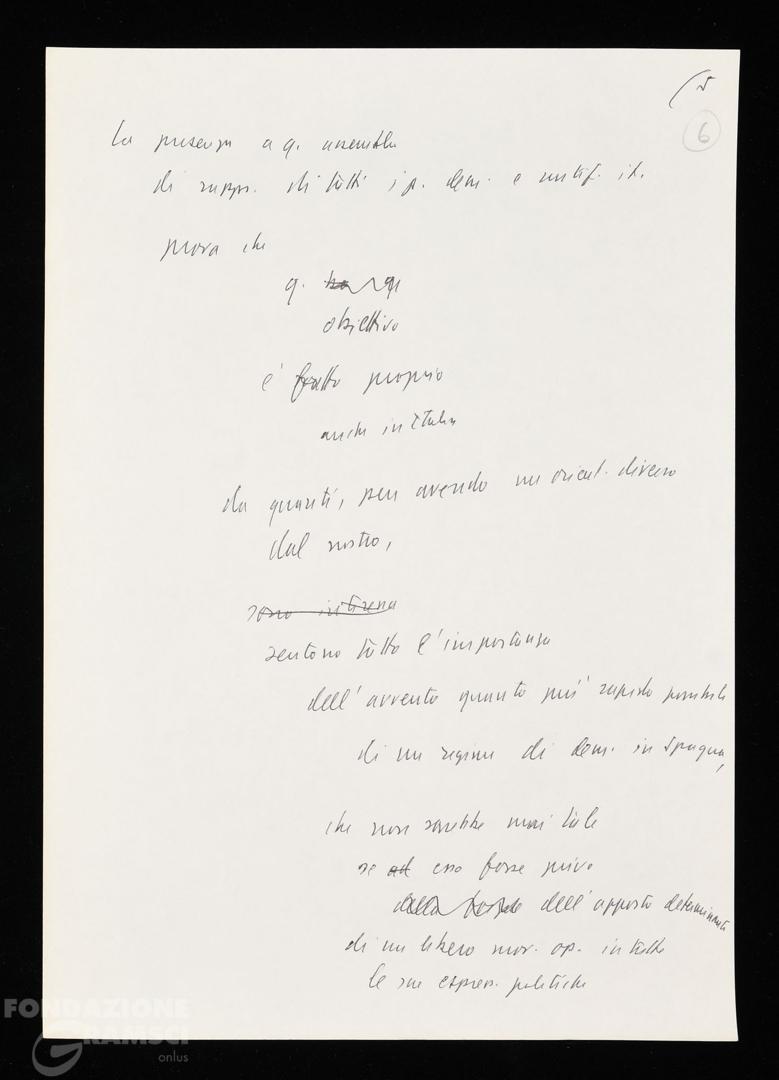 (5
6
La presenza a q. assemblea
di rappr. di tutti i p. dem. e antif. it.
prova che
q.
obiettivo
è fatto proprio
anche in Italia
da quanti, pur avendo un orient. diverso
dal nostro,
sono in Europa
sentono tutta l'importanza
dell'avvento quanto più rapido possibile
di un regime di dem. in Spagna,
che non sarebbe mai tale
se ad esso fosse privo
dell'apporto determinante
di un libero mov. op. in tutte
le sue espress. politiche
FONDAZIONE
GRAMSCI
onlus